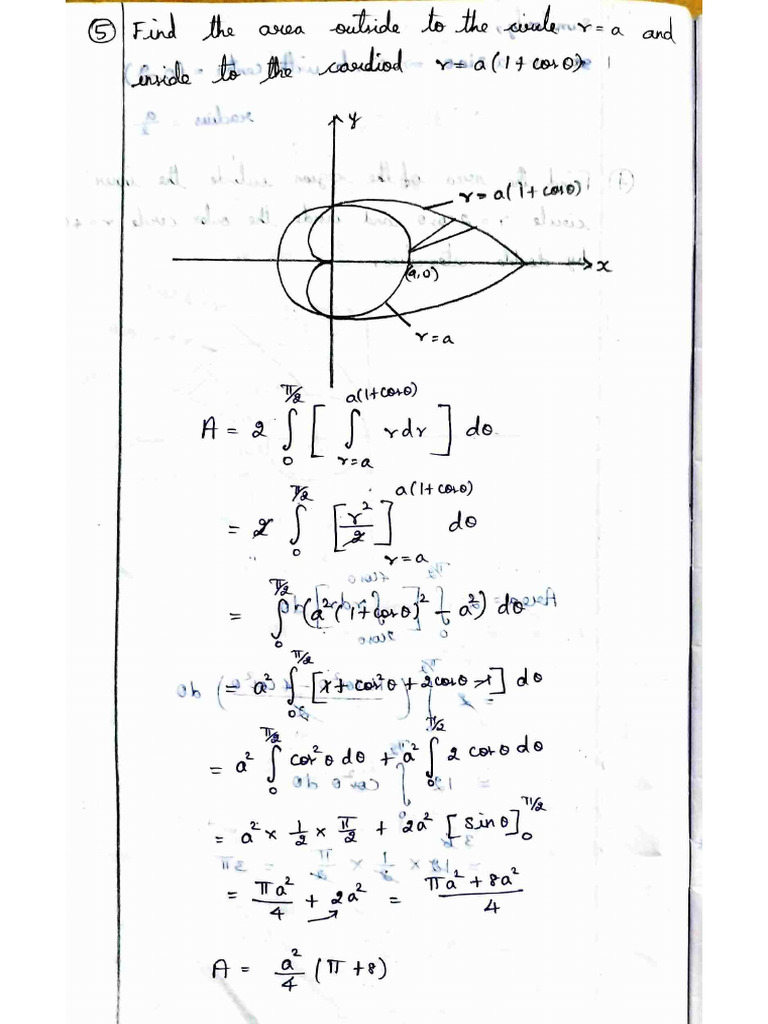 ⑤ Find the area outside to the circle r = a and
inside to the cardiod r = a(1+cosθ)
y
r = a(1+cosθ)
x
(a,0)
r = a
A = 2 ∫₀^{π/2} [ ∫_{r=a}^{a(1+cosθ)} r dr ] dθ
= 2 ∫₀^{π/2} [r²/2]_{r=a}^{a(1+cosθ)} dθ
= ∫₀^{π/2} (a²(1+cosθ)² - a²) dθ
= a² ∫₀^{π/2} [1 + cos²θ + 2cosθ - 1] dθ
= a² ∫₀^{π/2} cos²θ dθ + a² ∫₀^{π/2} 2 cosθ dθ
= a² × 1/2 × π/2 + 2a² [sinθ]₀^{π/2}
= πa²/4 + 2a² = πa² + 8a²/4
A = a²/4 (π + 8)